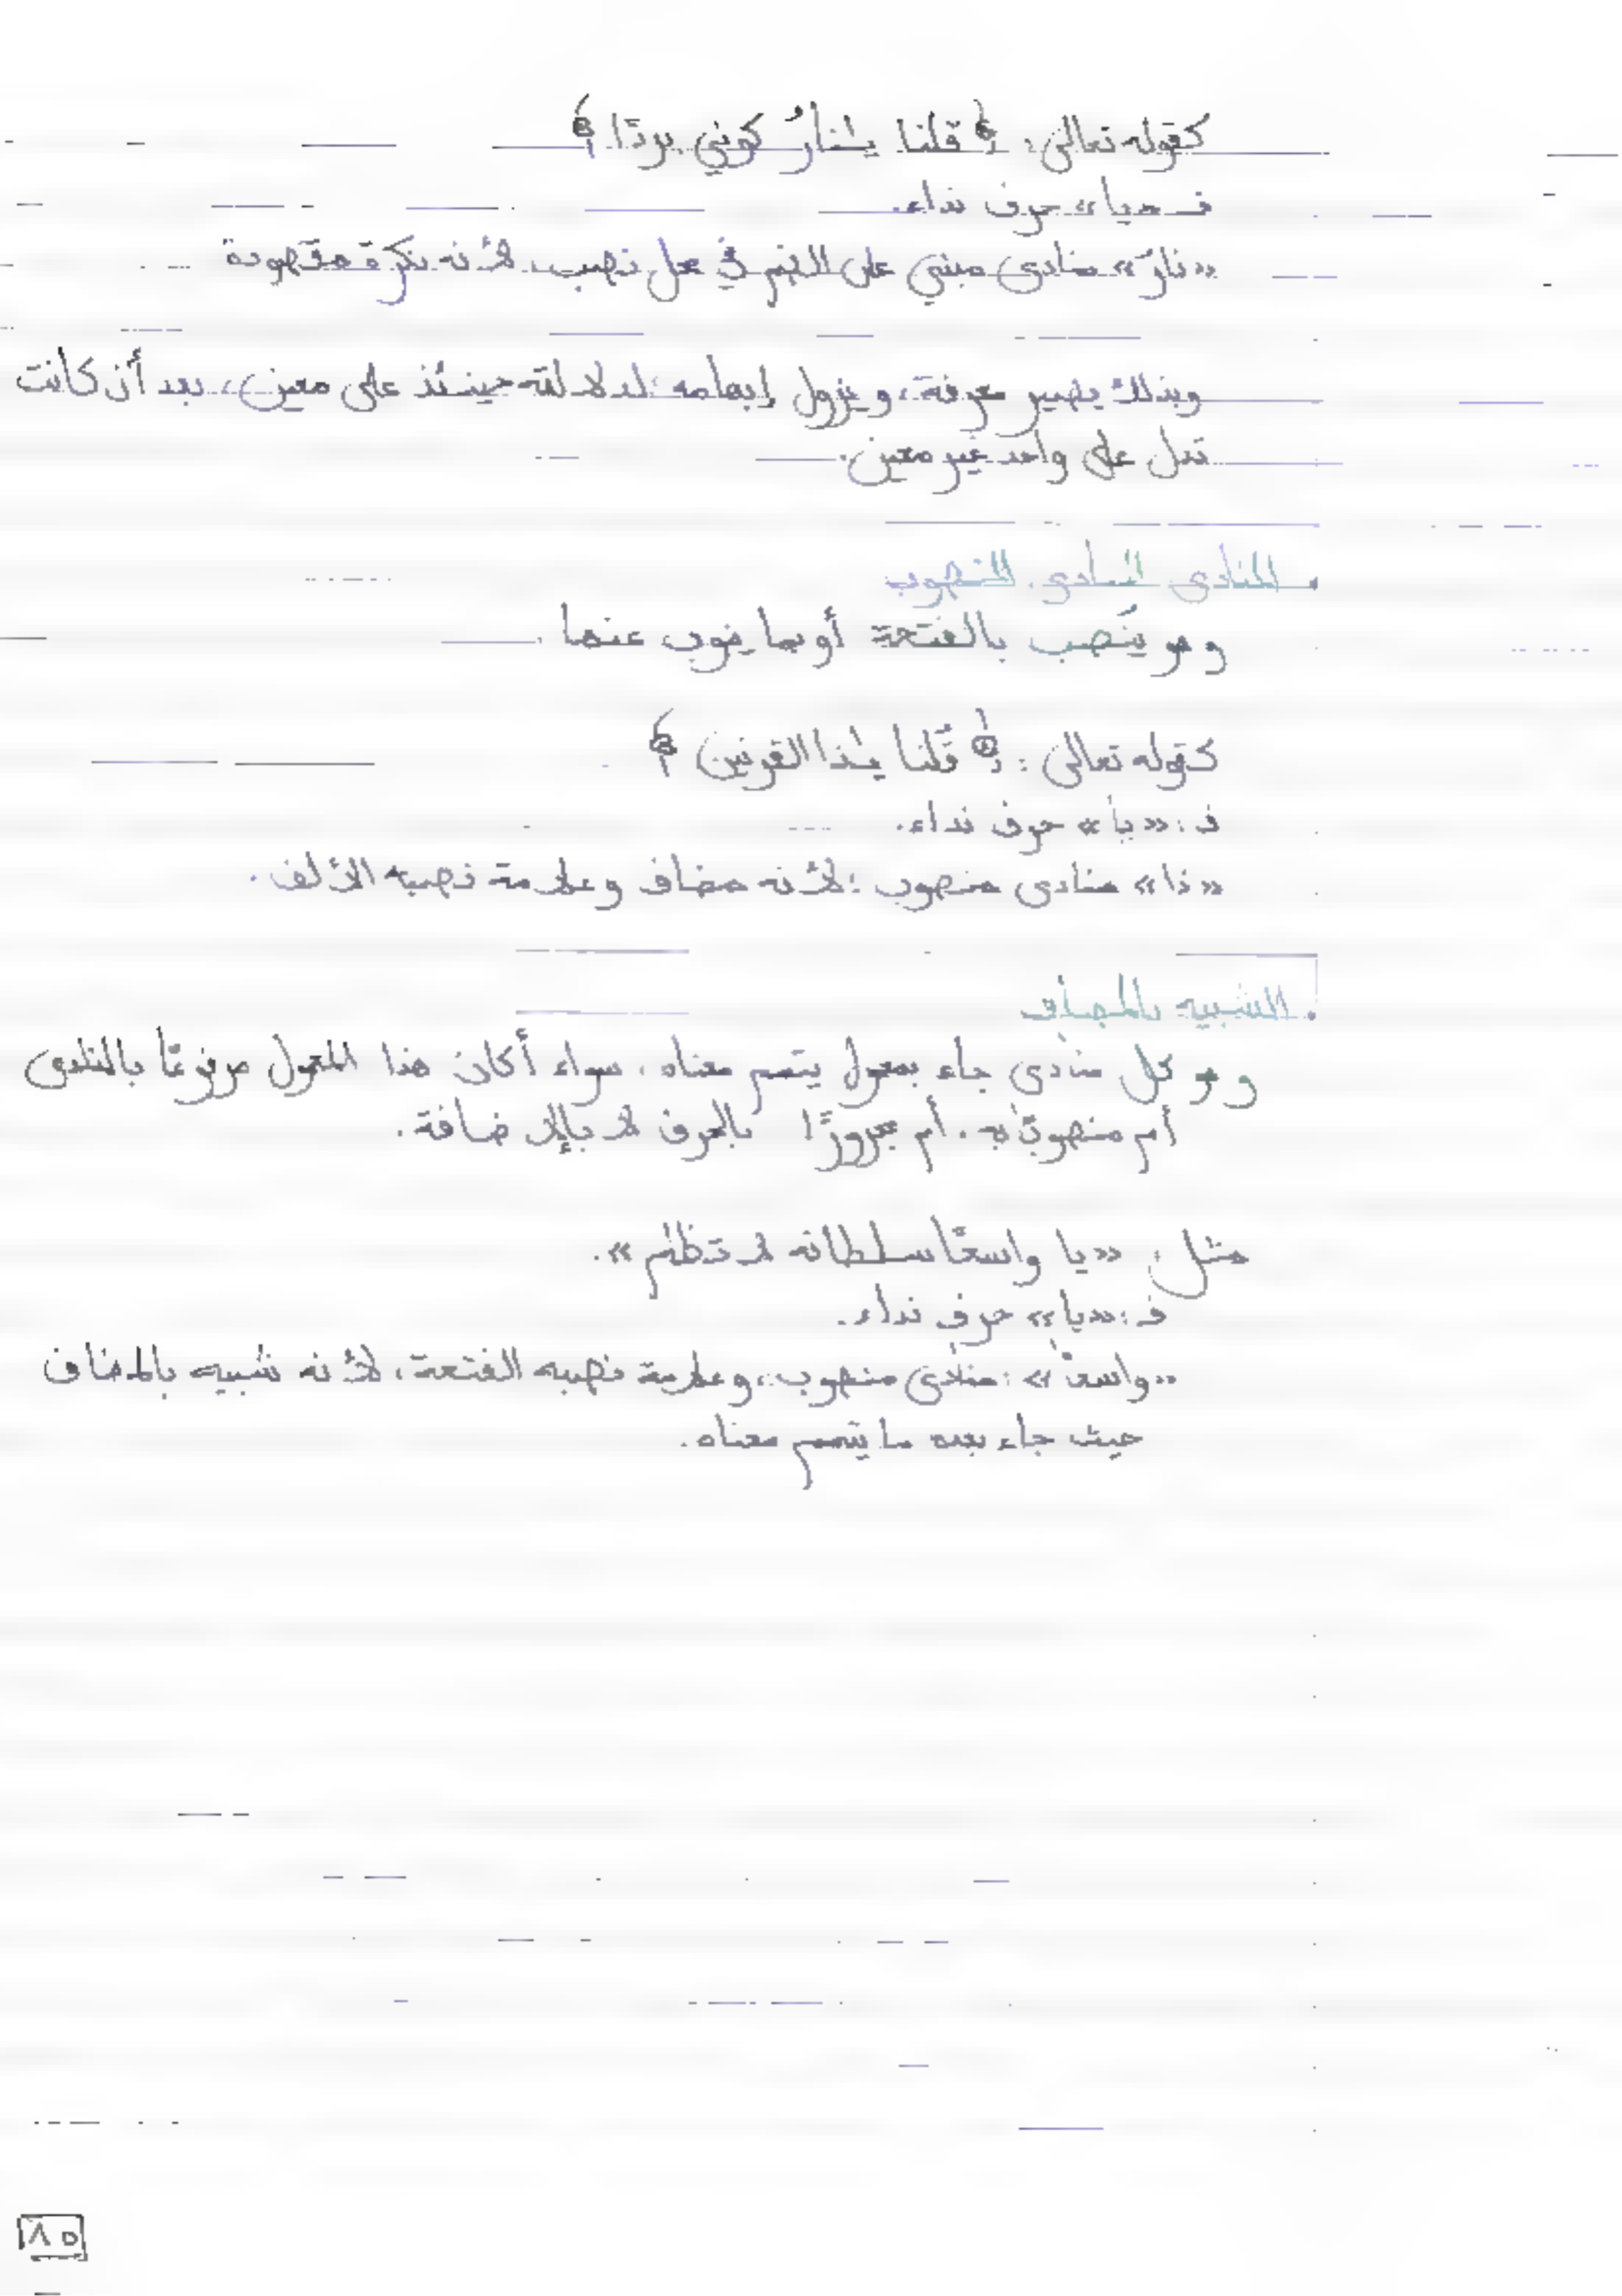 كقوله تعالى: ﴿ قلنا يٰنارُ كوني بردًا ﴾
فـ «يا» حرف نداء.
«نارُ» منادى مبني على الضم في محل نصب، لأنه نكرة مقصودة
وبذلك يصير معرفة، ويزول إبهامه؛ لدلالته حينئذ على معين، بعد أن كانت
تدل على واحد غير معين.
. المنادى المنصوب
وهو ينصب بالفتحة أو بما ينوب عنها.
كقوله تعالى: ﴿ قُلنا يٰذا القرنين ﴾
فـ: «يا» حرف نداء.
«ذا» منادى منصوب؛ لأنه مضاف وعلامة نصبه الألف.
. الشبيه بالمضاف
وهو كل منادى جاء بمعمول يتمم معناه، سواء أكان هذا المعمول مرفوعًا بالمنادى
أم منصوبًا به. أم مجرورًا بالحرف لا بالإضافة.
مثل: «يا واسعًا سلطانه لا تظلم».
فـ: «يا» حرف نداء.
«واسعًا»: منادى منصوب، وعلامة نصبه الفتحة، لأنه شبيه بالمضاف
حيث جاء بعده ما يتمم معناه.
٨٥